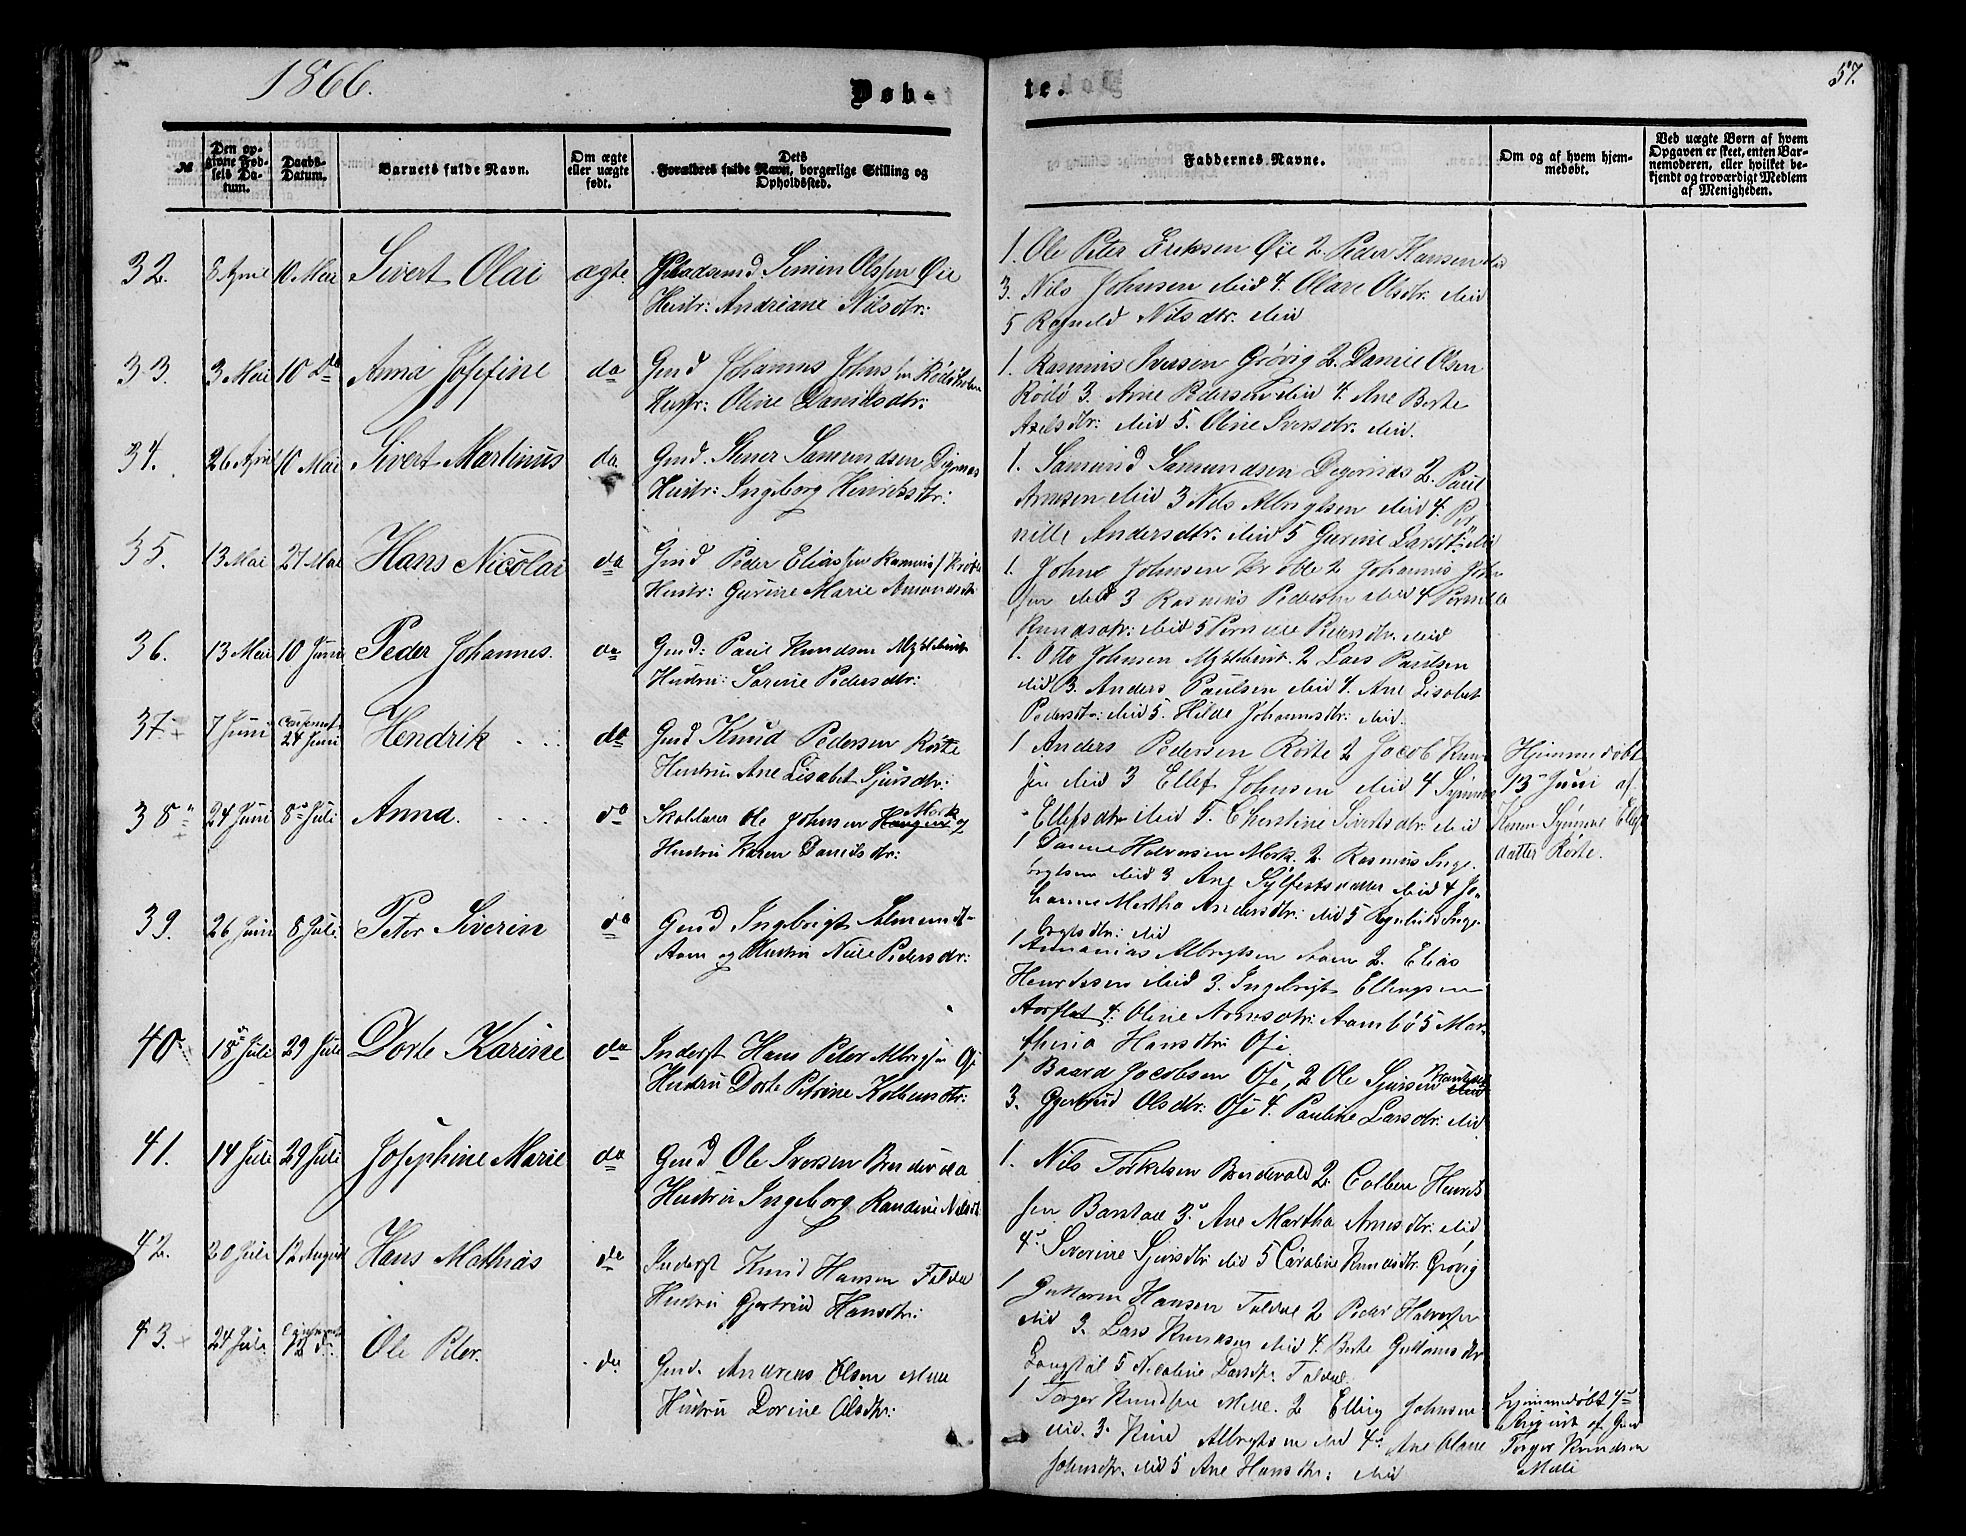 1866.
Døb-
te.
57.
№
Den op-
givne Fød-
sels Da-
tum.
Daabs-
Datum.
Barnets fulde Navn.
Om ægte
eller uægte
født.
Dets
Forældres fulde Navn, borgerlige Stilling og
Opholdssted.
Faddernes Navne.
Om og af hvem hjem-
medøbt.
Ved uægte Børn af hvem
Opgaven er skeet, enten Bar-
nemoderen, eller hvilket be-
kjendt og troværdigt Medlem
af Menigheden.
32. 8 April 10 Mai Sivert Olai ægte Simen Olssen Øie
Hustr: Andriane Nilsdtr:
1. Ole Peter Eriksen Øie 2 Peder Hansen
3. Nils Johnsen ibid 4. Olave Olsdtr. ibid
5 Nilsdtr. ibid
33. 3 Mai 10 do Anna Josefine do Gmd Johannes Johnsen
Hustr: Oline Danielsdtr:
1. Rasmus Iversen Grøvig 2. Daniel Olsen
Rødø 3. Arne Pedersen ibid 4. Ane Berte
dtr. ibid 5. Oline Iversdtr. ibid.
34. 26 April 10 Mai Sivert Martinus do Gmd. Samundsen
Hustr: Ingeborg Henriksdtr:
1. Samund Samundsen Degernæs 2. Paul
Arnesen ibid 3 Nils Albrigtsen ibid 4. Per
nille Andersdtr. ibid 5 Gurine Larsdtr. ibid
35. 13 Mai 27 Mai Hans Nicolai do Gmd Peder Eliassen
Hustr: Gurine Marie Amundsdtr
1. John Johnsen 2 Johannes John
sen ibid 3 Rasmus Pedersen ibid 4 Pernille
Knudsdtr: ibid 5 Pernille Pedersdtr. ibid
36. 13 Mai 10 Juni Peder Johannes. do Gmd: Paul Knudsen Myklebust
Hustru: Sorine Pedersdtr:
1. Otto Johnsen Myklebust. 2 Lars Paulsen
ibid 3. Anders Paulsen ibid 4. Ane Lisabet
Pedersdtr: ibid 5. Hilde Johannesdtr: ibid.
37. 7 Juni 24 Juni Hendrik do Gmd Knud Pedersen Røste
Hustru Ane Lisabet Sjursdtr:
1 Anders Pedersen Røste 2 Jacob Knud
sen ibid 3 Ellef Johnsen ibid 4 Synneve
Ellefsdtr ibid 5. Cherstine Sivertsdtr. ibid
Hjemmedøbt
13 Juni af
Karen Synneve Ellefs
datter Røste.
38 24 Juni 8 Juli Anna. do Skolelærer Ole Johnsen Haugen Mork og
Hustru Karen Danielsdtr:
1 Daniel Halvorsen Mork. 2. Rasmus Inge
brigtsen ibid 3 Ane Sylfestsdatter ibid 4 Jo
hanne Martha Andersdtr: ibid 5 Inge
brigtsdtr: ibid
39. 26 Juni 8 Juli Peter Siverin do Gmd Ingebrigt
Aam og Hustru Pedersdtr:
1 Annanias Albrigtsen Aam 2. Elias
Henriksen ibid 3. Ingebrigt Ellingsen
Aarflot 4. Oline Arnesdtr: Aambø 5 Mar
thina Hansdtr: Øsie
40 18 Juli 29 Juli Dorte Karine do Inderst Hans Peter Albrigtsen
Hustru Dorte Petrine Kolbensdtr:
1 Baard Jacobsen 2 Ole Sjursen
3. Gjertrud Olsdtr. 4. Pauline Larsdtr. ibid
41. 14 Juli 29 Juli Josephine Marie do Gmd Ole Iversen
Hustru Ingeborg Randine Nilsdtr
1. Nils Torkelsen Berdevald 2 Colben Henrik
sen Barstad 3. Ane Martha Arnesdtr: ibid,
4. Severine Sjursdtr ibid 5 Caroline Knudsdtr. Grøvig
42. 20 Juli 12 August Hans Mathias do Inderst Knud Hansen Foldal
Hustru Gjertrud Hansdtr:
1 Guttorm Hansen Foldal 2 Peder Halvorsen
ibid 3. Lars Knudsen ibid 4. Berte Guttormsdtr
5 Nicoline Larsdtr. Foldal.
43. 24 Juli 12 do Ole Peter. do Gmd. Andreas Olsen Melle
Hustru Dorine Olsdtr:
1 Torger Knudsen Melle. 2 Elling Johnsen
ibid. 3. Knud Albrigtsen ibid 4. Ane Olave
Johnsdtr. ibid 5 Ane Hansdtr: ibid
Hjemmedøbt 4de
August af Gmd
Torger Knudsen
Melle